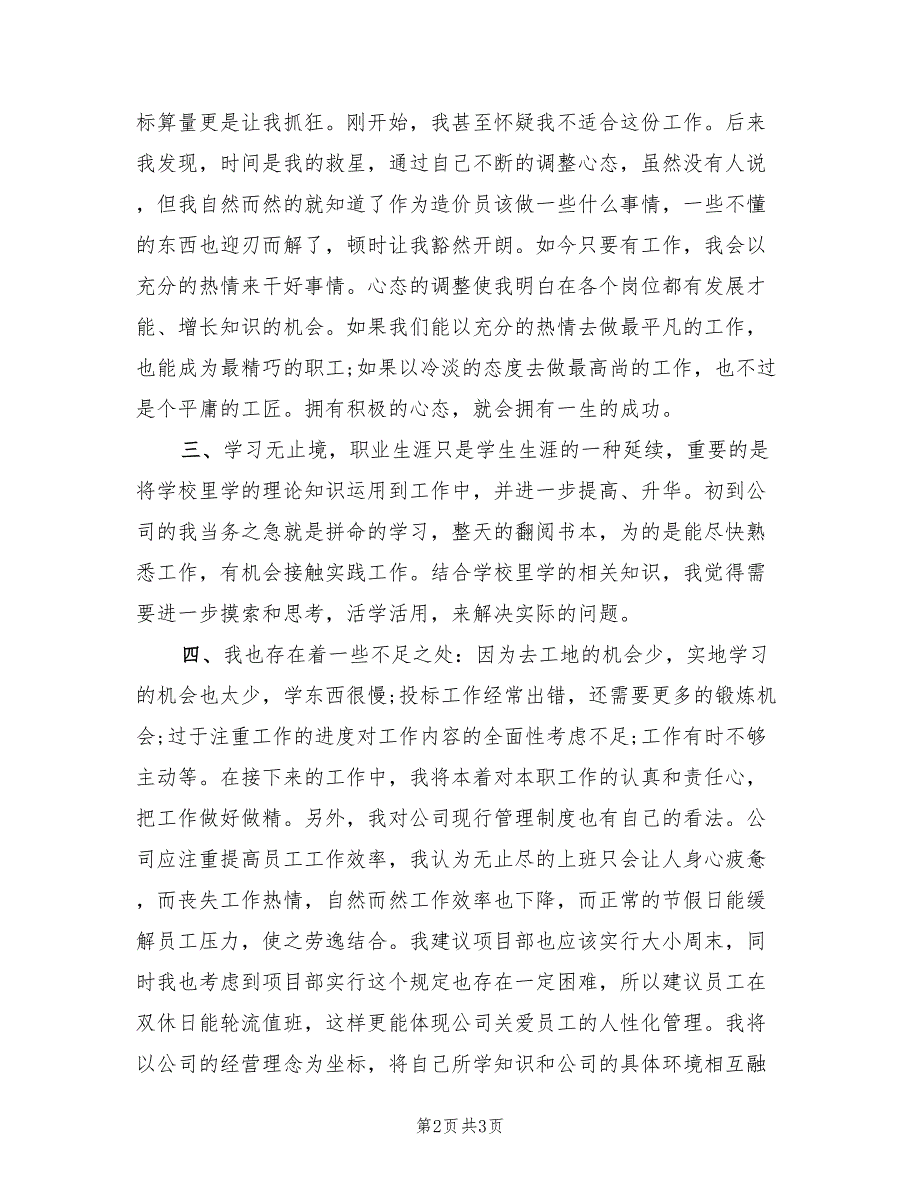 标算量更是让我抓狂。刚开始，我甚至怀疑我不适合这份工作。后来
我发现，时间是我的救星，通过自己不断的调整心态，虽然没有人说
，但我自然而然的就知道了作为造价员该做一些什么事情，一些不懂
的东西也迎刃而解了，顿时让我豁然开朗。如今只要有工作，我会以
充分的热情来干好事情。心态的调整使我明白在各个岗位都有发展才
能、增长知识的机会。如果我们能以充分的热情去做最平凡的工作，
也能成为最精巧的职工;如果以冷淡的态度去做最高尚的工作，也不过
是个平庸的工匠。拥有积极的心态，就会拥有一生的成功。
三、学习无止境，职业生涯只是学生生涯的一种延续，重要的是
将学校里学的理论知识运用到工作中，并进一步提高、升华。初到公
司的我当务之急就是拼命的学习，整天的翻阅书本，为的是能尽快熟
悉工作，有机会接触实践工作。结合学校里学的相关知识，我觉得需
要进一步摸索和思考，活学活用，来解决实际的问题。
四、我也存在着一些不足之处：因为去工地的机会少，实地学习
的机会也太少，学东西很慢;投标工作经常出错，还需要更多的锻炼机
会;过于注重工作的进度对工作内容的全面性考虑不足;工作有时不够
主动等。在接下来的工作中，我将本着对本职工作的认真和责任心，
把工作做好做精。另外，我对公司现行管理制度也有自己的看法。公
司应注重提高员工工作效率，我认为无止尽的上班只会让人身心疲惫
，而丧失工作热情，自然而然工作效率也下降，而正常的节假日能缓
解员工压力，使之劳逸结合。我建议项目部也应该实行大小周末，同
时我也考虑到项目部实行这个规定也存在一定困难，所以建议员工在
双休日能轮流值班，这样更能体现公司关爱员工的人性化管理。我将
以公司的经营理念为坐标，将自己所学知识和公司的具体环境相互融
第2页 共3页